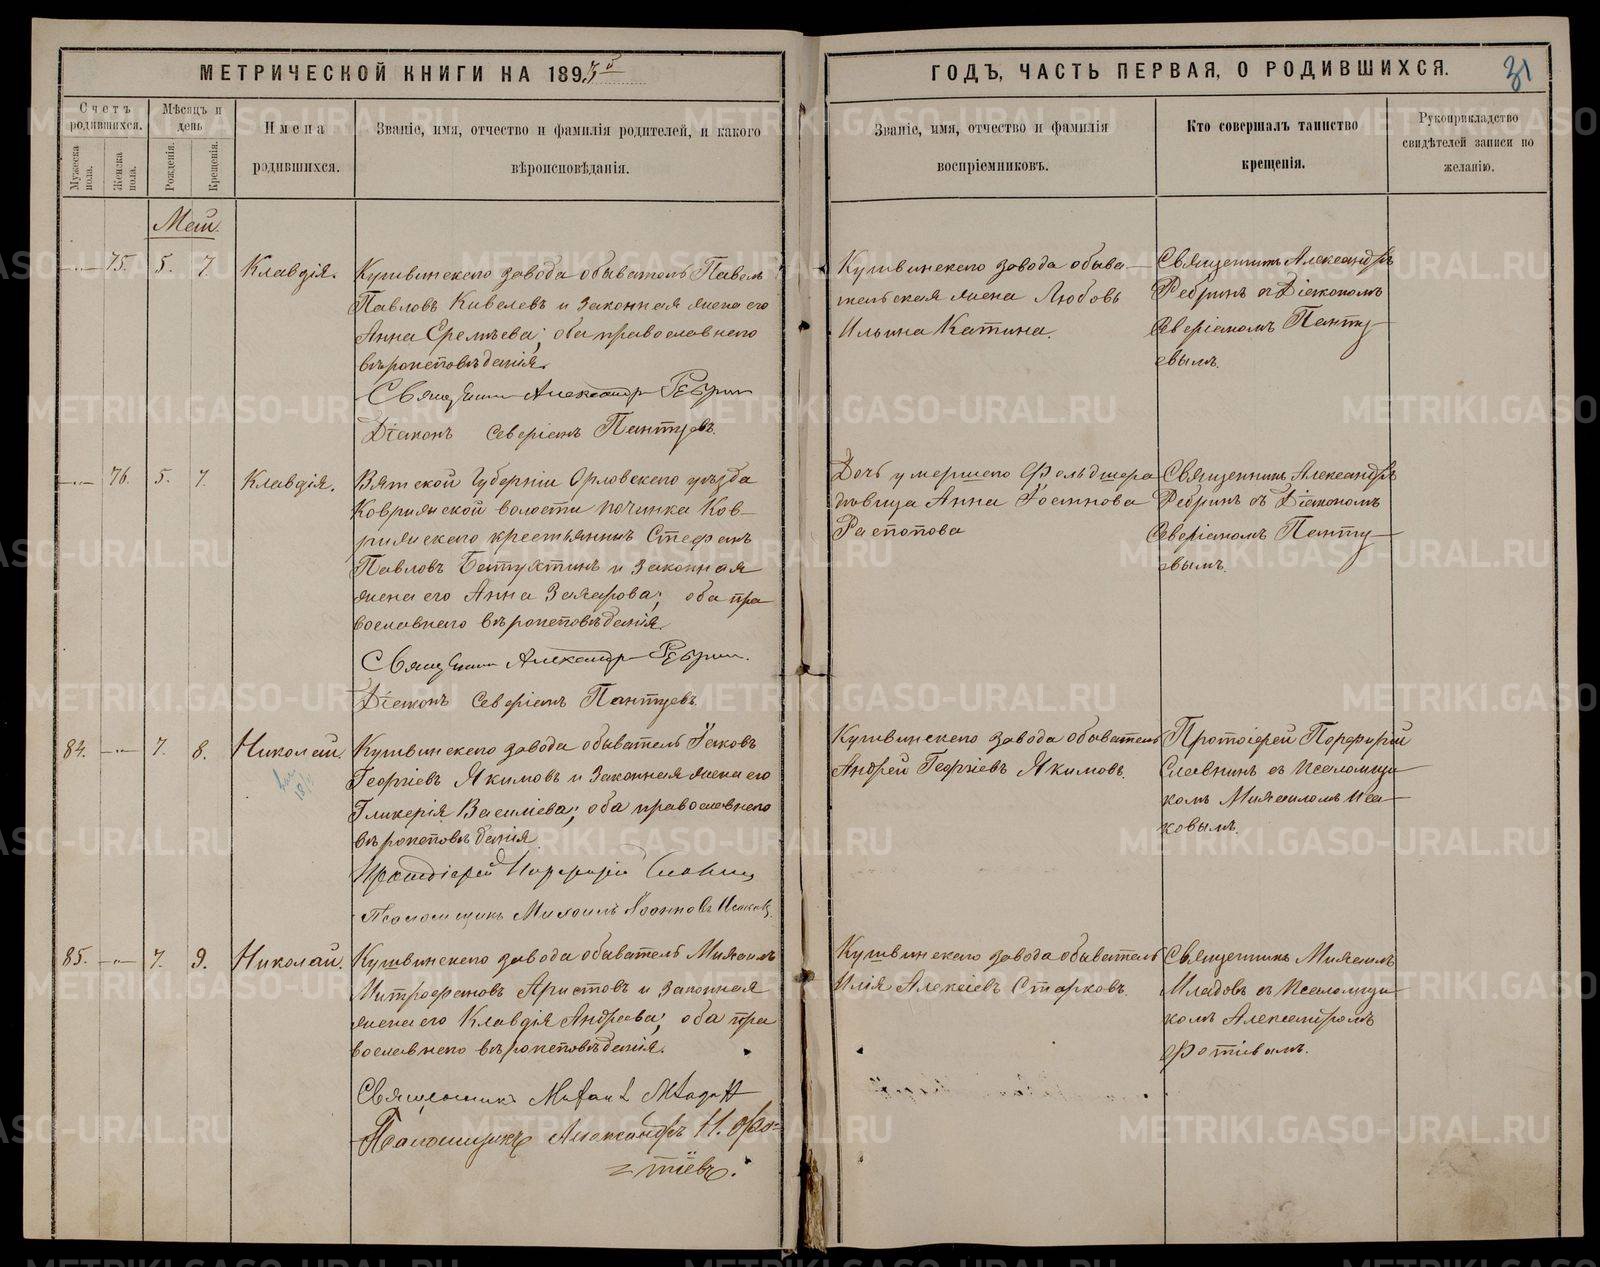 МЕТРИЧЕСКОЙ КНИГИ НА 1893й
ГОДЪ, ЧАСТЬ ПЕРВАЯ, О РОДИВШИХСЯ.
31
Счетъ родившихся.
Мужеска пола.
Женска пола.
Мѣсяцъ и день
Рожденія.
Крещенія.
Имена родившихся.
Званіе, имя, отчество и фамилія родителей, и какого
вѣроисповѣданія.
Званіе, имя, отчество и фамилія
воспріемниковъ.
Кто совершалъ таинство
крещенія.
Рукоприкладство
свидѣтелей записи по
желанію.
Май.
75. 5. 7. Клавдія.
Кушвинскаго завода обыватель Павелъ
Павловъ Кивелевъ и законная жена его
Анна Еремѣева; оба православнаго
вѣроисповѣданія.
Священникъ Александръ Ребринъ
Діаконъ Северіанъ Пантуевъ.
Кушвинскаго завода обыва-
тельская жена Любовь
Ильина Катина.
Священникъ Александръ
Ребринъ съ Діакономъ
Северіаномъ Панту-
евымъ.
76. 5. 7. Клавдія.
Вятской Губерніи Орловскаго уѣзда
Коврижской волости починка Ков-
рижскаго крестьянинъ Стефанъ
Павловъ Батухтинъ и законная
жена его Анна Захарова; оба пра
вославнаго вѣроисповѣданія.
Священникъ Александръ Ребринъ.
Діаконъ Северіанъ Пантуевъ.
Дочь умершаго Фельдшера
дѣвица Анна Іоаннова
Распопова
Священникъ Александръ
Ребринъ съ Діакономъ
Северіаномъ Панту-
евымъ.
84. 7. 8. Николай.
Кушвинскаго завода обыватель Іаковъ
Георгіевъ Якимовъ и законная жена его
Гликерія Васильева; оба православнаго
вѣроисповѣданія.
Протоіерей Порфирій Славнинъ
Псаломщикъ Михаилъ Іоанновъ Исаковъ.
Кушвинскаго завода обыватель
Андрей Георгіевъ Якимовъ.
Протоіерей Порфирій
Славнинъ съ Псаломщи
комъ Михаиломъ Иса-
ковымъ.
85. 7. 9. Николай.
Кушвинскаго завода обыватель Михаилъ
Митрофановъ Аристовъ и законная
жена его Клавдія Андреева; оба пра
вославнаго вѣроисповѣданія.
Священникъ Михаилъ Младовъ
Псаломщикъ Александръ Н. Фо-
тіевъ.
Кушвинскаго завода обыватель
Илія Алексіевъ Старковъ.
Священникъ Михаилъ
Младовъ съ Псаломщи
комъ Александромъ
Фотіевымъ.
METRIKI.GASO-URAL.RU